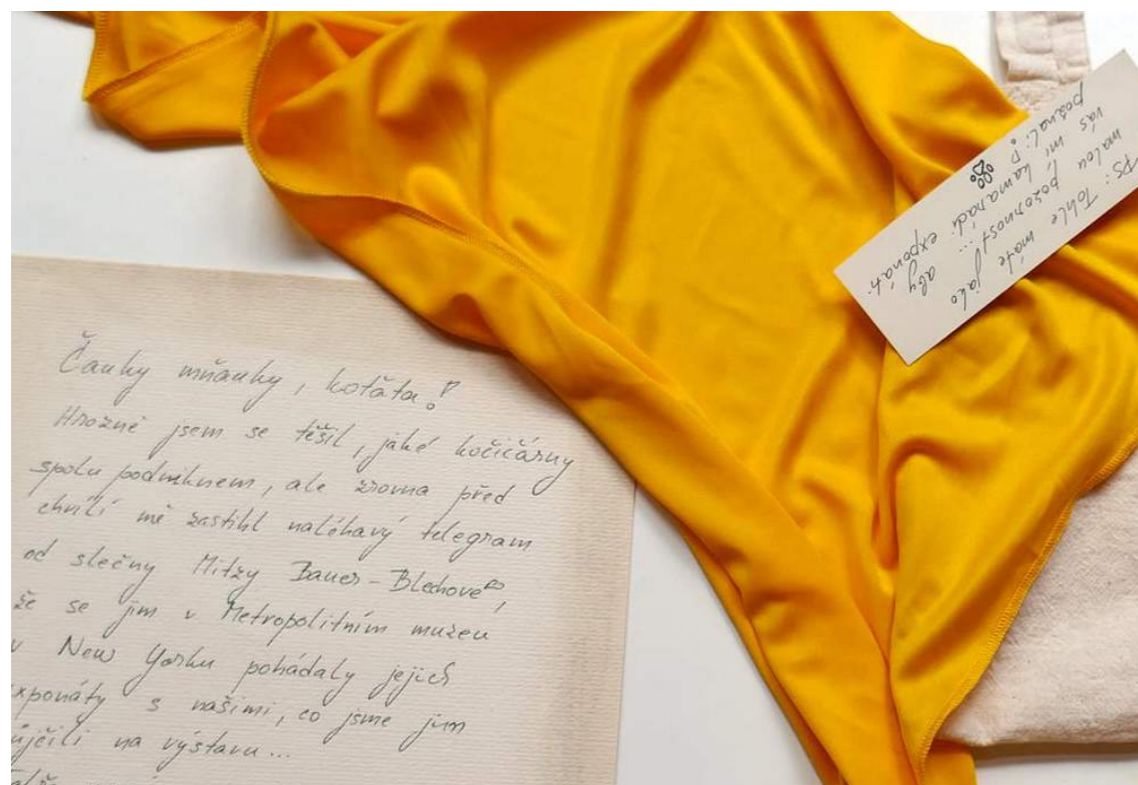 Čauky mňauky, koťata!
Hrozně jsem se těšil, jaké kočičárny
spolu podniknem, ale zrovna před
chvílí mě zastihl naléhavý telegram
od slečny Mitzy Bauer-Blechové,
že se jim v Metropolitním muzeu
v New Yorku pohádaly jejich
exponáty s našimi, co jsme jim
na výstavu...
PS: Tohle máte jako
malou pozornost... aby
vás mí kamarádi exponáti
poznali!